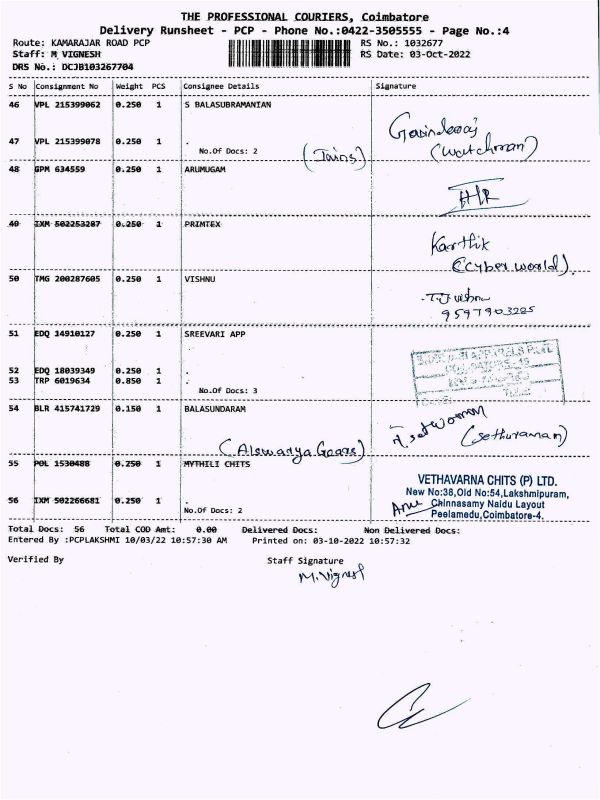 THE PROFESSIONAL COURIERS, Coimbatore
Delivery Runsheet - PCP - Phone No.:0422-3505555 - Page No.:4
Route: KAMARAJAR ROAD PCP RS No.: 1032677
Staff: M VIGNESH RS Date: 03-Oct-2022
DRS No.: DCJB103267704
S No Consignment No Weight PCS Consignee Details Signature
46 VPL 215399062 0.250 1 S BALASUBRAMANIAN
Govindaraj
47 VPL 215399078 0.250 1 . (watchman)
No.Of Docs: 2 (Jains)
48 GPM 634559 0.250 1 ARUMUGAM
49 IXM 502253287 0.250 1 PRIMTEX
Karthik
(Cyber world).
50 TMG 200287605 0.250 1 VISHNU
9597903225
51 EDQ 14910127 0.250 1 SREEVARI APP
52 EDQ 18039349 0.250 1 .
53 TRP 6019634 0.850 1 .
No.Of Docs: 3
54 BLR 415741729 0.150 1 BALASUNDARAM
(Sethuraman)
55 POL 1530488 0.250 1 MYTHILI CHITS
VETHAVARNA CHITS (P) LTD.
New No:38,Old No:54,Lakshmipuram,
56 IXM 502266681 0.250 1 . Chinnasamy Naidu Layout
No.Of Docs: 2 Peelamedu,Coimbatore-4.
Total Docs: 56 Total COD Amt: 0.00 Delivered Docs: Non Delivered Docs:
Entered By :PCPLAKSHMI 10/03/22 10:57:30 AM Printed on: 03-10-2022 10:57:32
Verified By Staff Signature
M.Vignesh